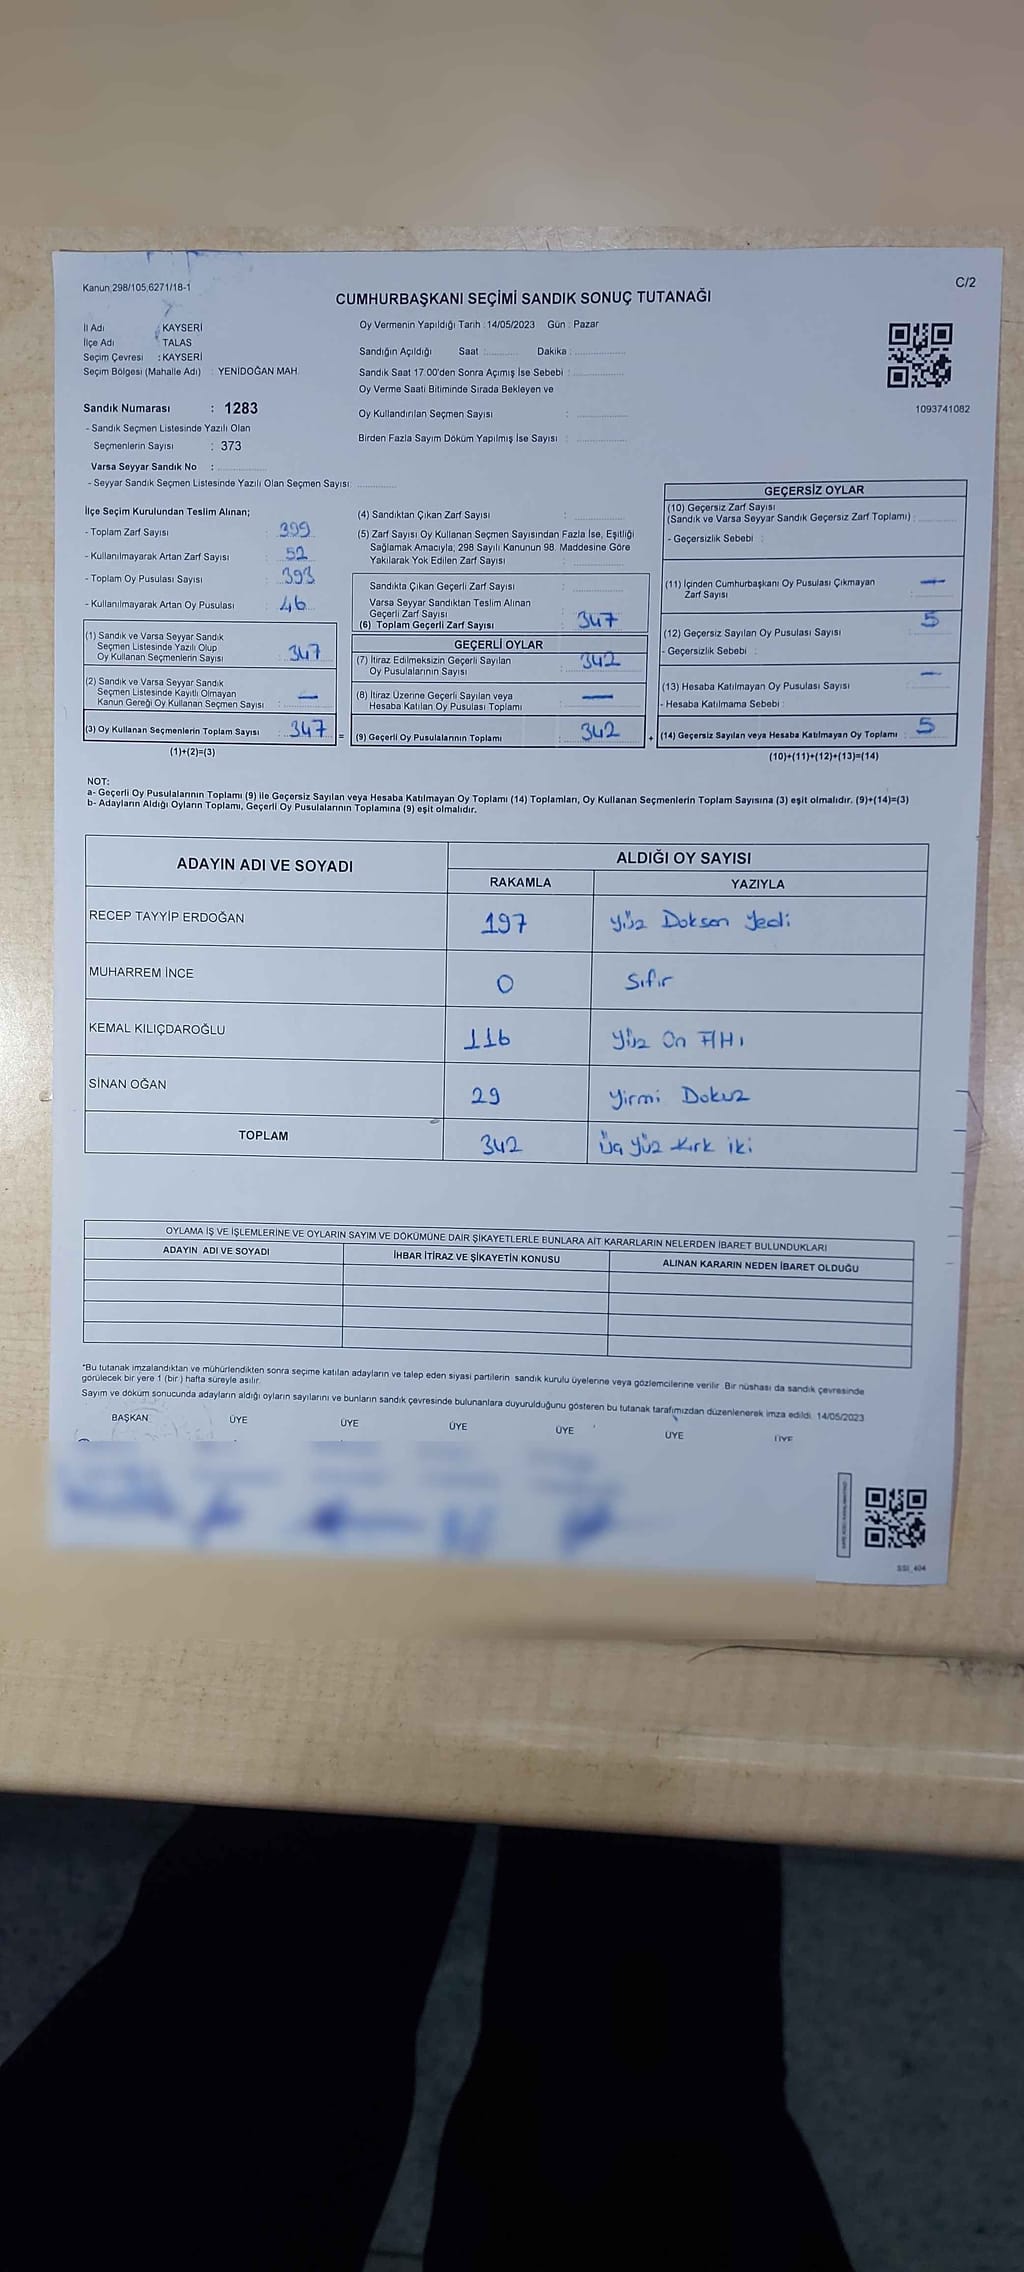 Kanun,298/105,6271/18-1
C/2
CUMHURBAŞKANI SEÇİMİ SANDIK SONUÇ TUTANAĞI
İl Adı : KAYSERİ
İlçe Adı : TALAS
Seçim Çevresi : KAYSERİ
Seçim Bölgesi (Mahalle Adı) : YENİDOĞAN MAH.
Sandık Numarası : 1283
- Sandık Seçmen Listesinde Yazılı Olan
Seçmenlerin Sayısı : 373
Varsa Seyyar Sandık No :
- Seyyar Sandık Seçmen Listesinde Yazılı Olan Seçmen Sayısı:
Oy Vermenin Yapıldığı Tarih : 14/05/2023 Gün : Pazar
Sandığın Açıldığı Saat : Dakika :
Sandık Saat 17:00'den Sonra Açımış İse Sebebi :
Oy Verme Saati Bitiminde Sırada Bekleyen ve
Oy Kullandırılan Seçmen Sayısı :
Birden Fazla Sayım Döküm Yapılmış İse Sayısı :
1093741082
İlçe Seçim Kurulundan Teslim Alınan;
- Toplam Zarf Sayısı : 399
- Kullanılmayarak Artan Zarf Sayısı : 52
- Toplam Oy Pusulası Sayısı : 393
- Kullanılmayarak Artan Oy Pusulası : 46
(1) Sandık ve Varsa Seyyar Sandık
Seçmen Listesinde Yazılı Olup
Oy Kullanan Seçmenlerin Sayısı : 347
(2) Sandık ve Varsa Seyyar Sandık
Seçmen Listesinde Kayıtlı Olmayan
Kanun Gereği Oy Kullanan Seçmen Sayısı : —
(3) Oy Kullanan Seçmenlerin Toplam Sayısı : 347 =
(1)+(2)=(3)
(4) Sandıktan Çıkan Zarf Sayısı :
(5) Zarf Sayısı Oy Kullanan Seçmen Sayısından Fazla İse, Eşitliği
Sağlamak Amacıyla, 298 Sayılı Kanunun 98. Maddesine Göre
Yakılarak Yok Edilen Zarf Sayısı :
Sandıkta Çıkan Geçerli Zarf Sayısı :
Varsa Seyyar Sandıktan Teslim Alınan
Geçerli Zarf Sayısı :
(6) Toplam Geçerli Zarf Sayısı : 347
GEÇERLİ OYLAR
(7) İtiraz Edilmeksizin Geçerli Sayılan
Oy Pusulalarının Sayısı : 342
(8) İtiraz Üzerine Geçerli Sayılan veya
Hesaba Katılan Oy Pusulası Toplamı : —
(9) Geçerli Oy Pusulalarının Toplamı : 342 +
GEÇERSİZ OYLAR
(10) Geçersiz Zarf Sayısı
(Sandık ve Varsa Seyyar Sandık Geçersiz Zarf Toplamı) :
- Geçersizlik Sebebi :
(11) İçinden Cumhurbaşkanı Oy Pusulası Çıkmayan
Zarf Sayısı : —
(12) Geçersiz Sayılan Oy Pusulası Sayısı : 5
- Geçersizlik Sebebi :
(13) Hesaba Katılmayan Oy Pusulası Sayısı : —
- Hesaba Katılmama Sebebi :
(14) Geçersiz Sayılan veya Hesaba Katılmayan Oy Toplamı : 5
(10)+(11)+(12)+(13)=(14)
NOT:
a- Geçerli Oy Pusulalarının Toplamı (9) ile Geçersiz Sayılan veya Hesaba Katılmayan Oy Toplamı (14) Toplamları, Oy Kullanan Seçmenlerin Toplam Sayısına (3) eşit olmalıdır. (9)+(14)=(3)
b- Adayların Aldığı Oyların Toplamı, Geçerli Oy Pusulalarının Toplamına (9) eşit olmalıdır.
ADAYIN ADI VE SOYADI
ALDIĞI OY SAYISI
RAKAMLA YAZIYLA
RECEP TAYYİP ERDOĞAN 197 Yüz Doksan Yedi
MUHARREM İNCE 0 Sıfır
KEMAL KILIÇDAROĞLU 116 Yüz On Altı
SİNAN OĞAN 29 Yirmi Dokuz
TOPLAM 342 Üç Yüz Kırk iki
OYLAMA İŞ VE İŞLEMLERİNE VE OYLARIN SAYIM VE DÖKÜMÜNE DAİR ŞİKAYETLERLE BUNLARA AİT KARARLARIN NELERDEN İBARET BULUNDUKLARI
ADAYIN ADI VE SOYADI İHBAR İTİRAZ VE ŞİKAYETİN KONUSU ALINAN KARARIN NEDEN İBARET OLDUĞU
*Bu tutanak imzalandıktan ve mühürlendikten sonra seçime katılan adayların ve talep eden siyasi partilerin sandık kurulu üyelerine veya gözlemcilerine verilir. Bir nüshası da sandık çevresinde
görülecek bir yere 1 (bir ) hafta süreyle asılır.
Sayım ve döküm sonucunda adayların aldığı oyların sayılarını ve bunların sandık çevresinde bulunanlara duyurulduğunu gösteren bu tutanak tarafımızdan düzenlenerek imza edildi. 14/05/2023
BAŞKAN ÜYE ÜYE ÜYE ÜYE ÜYE ÜYE
SSI_404